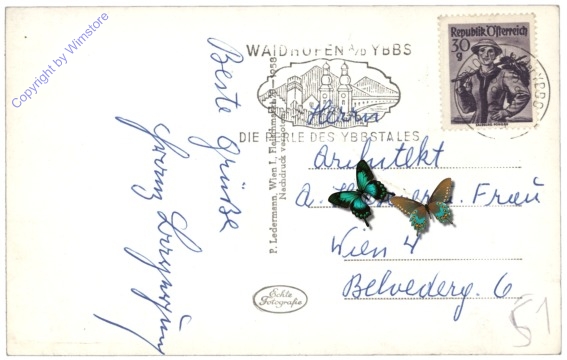 Copyright by Wimstore
WAIDHOFEN A/D YBBS
DIE PERLE DES YBBSTALES
Republik Österreich
30
g
Beste Grüße
P. Ledermann, Wien I., 1958
Nachdruck verboten
Herrn
Architekt
u. Frau
Wien 4
Belvederg. 6
Echte
Fotografie
51